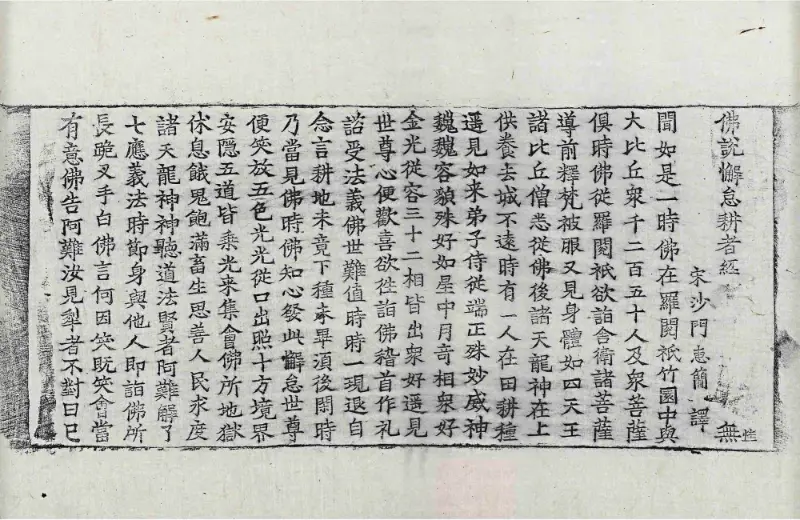 佛說懈怠耕者經
宋沙門惠簡譯 無
聞如是一時佛在羅閱祇竹園中與
大比丘衆千二百五十人及衆菩薩
俱時佛從羅閱祇欲詣舍衛諸菩薩
導前釋梵被服又見身體如四天王
諸比丘僧悉從佛後諸天龍神在上
供養去城不遠時有一人在田耕種
遥見如来弟子侍從端正殊妙威神
巍巍容貌殊好如星中月奇相衆好
金光從容三十二相皆出衆好遥見
世尊心便歡喜欲徃詣佛稽首作礼
諮受法義佛世難值時時一現退自
念言耕地未竟下種未畢湏後閑時
乃當見佛時佛知心發此懈怠世尊
便笑放五色光光從口出照十方境界
安隱五道皆乘光来集會佛所地獄
休息餓鬼飽滿畜生思善人民求度
諸天龍神神聽道法賢者阿難解了
七應義法時節身與他人即詣佛所
長跪叉手白佛言何因笑既笑會當
有意佛告阿難汝見犁者不對曰已